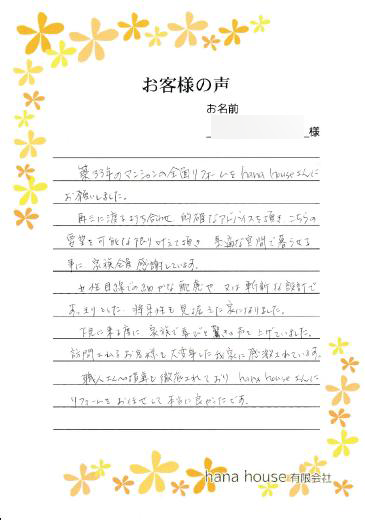 お客様の声
お名前
様
築33年のマンションの全面リフォームをhana houseさんに
お願いしました。
再三に渡る打ち合わせ 的確なアドバイスを頂き こちらの
要望を可能な限り叶えて頂き 素適な空間で暮らせる
事に 家族全員 感謝しています。
女性目線での細かな配慮や 又は斬新な設計で
あっとした 将来性も見据えた家になりました。
下見に来る度に 家族で喜びと驚きの声を上げていました。
訪問されるお客様も大変身した我家に感激されています。
職人さんへの指導も徹底されており hana houseさんに
リフォームをお任せして本当に良かったです。
hana house 有限会社